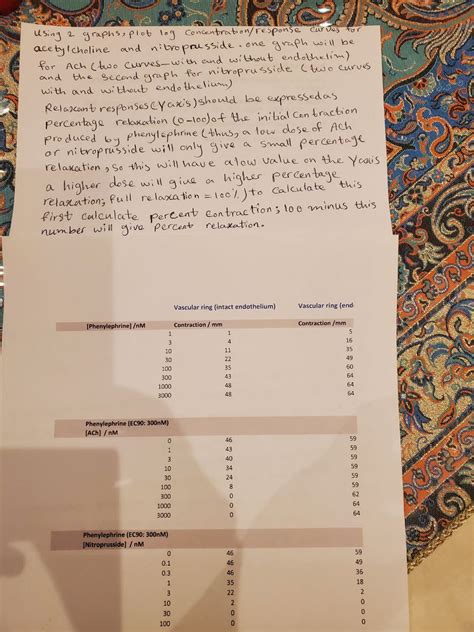 Using 2 graphs, plot log concentration/response curves for
acetylcholine and nitroprusside. one graph will be
for Ach (two curves_with and without endothelim)
and the second graph for nitroprusside (two curves
with and without endothelium)
Relaxant responses (Yaxis) should be expressed as
percentage relaxation (0-100) of the initial contraction
produced by phenylephrine (thus, a low dose of Ach
or nitroprusside will only give a small percentage
relaxation, so this will have a low value on the Yaxis
a higher dose will give a higher percentage
relaxation; full relaxation = 100%) to calculate this
first calculate percent contraction; 100 minus this
number will give percent relaxation.
Vascular ring (intact endothelium) Vascular ring (end
[Phenylephrine] /nM Contraction / mm Contraction /mm
1 1 5
3 4 16
10 11 35
30 22 49
100 35 60
300 43 64
1000 48 64
3000 48 64
Phenylephrine (EC90: 300nM)
[ACh] / nM
0 46 59
1 43 59
3 40 59
10 34 59
30 24 59
100 8 59
300 0 62
1000 0 64
3000 0 64
Phenylephrine (EC90: 300nM)
[Nitroprusside] / nM
0 46 59
0.1 46 49
0.3 46 36
1 35 18
3 22 2
10 2 0
30 0 0
100 0 0